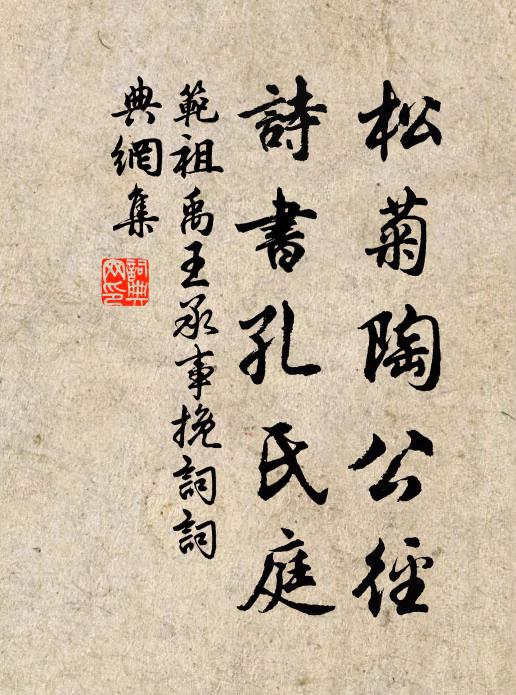 松菊陶公徑
詩書孔氏庭
範祖禹王承事挽詞詞
典網集
詞典
网印